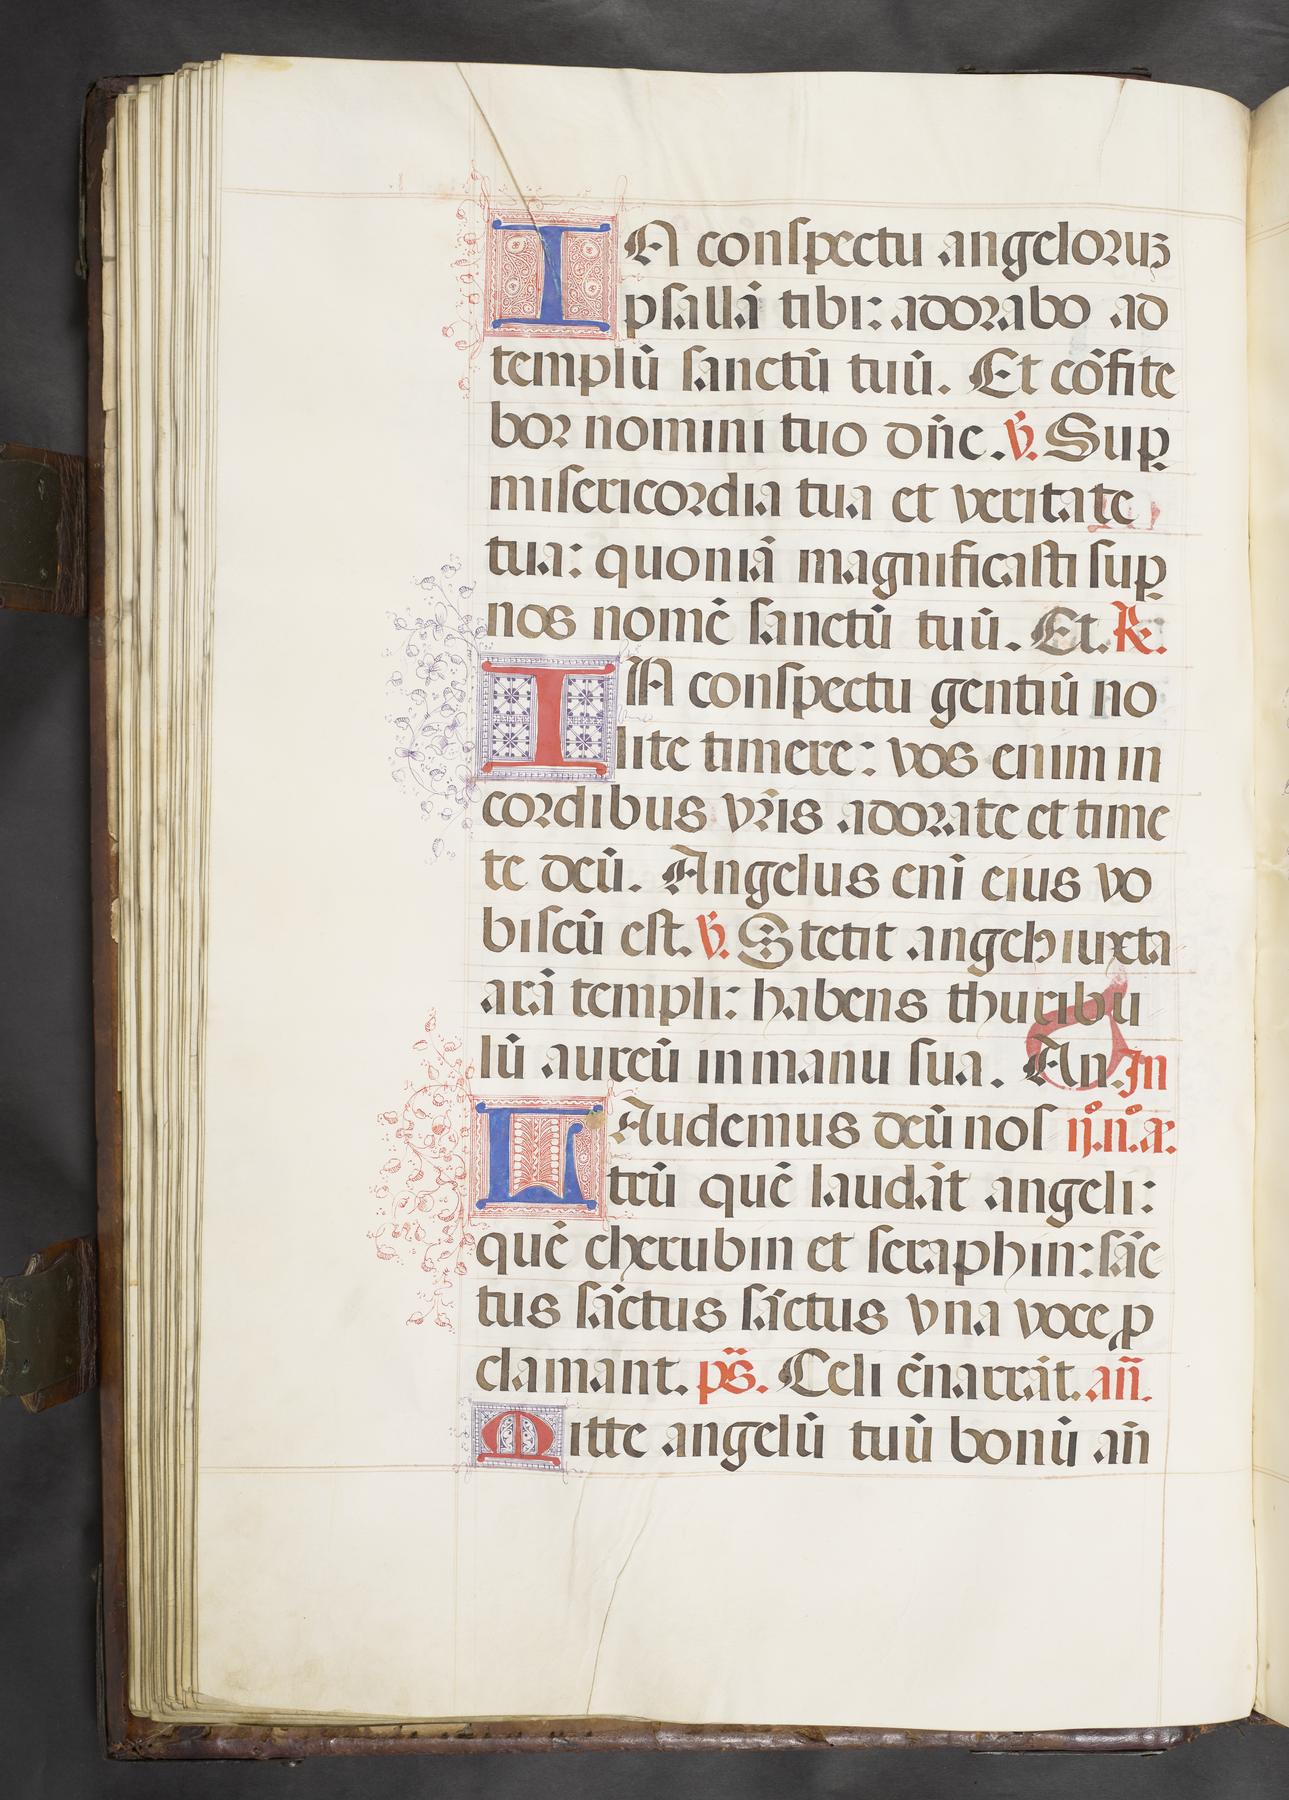 IN conspectu angeloruz
psallā tibi: adorabo ad
templū sanctū tuū. Et cōfite
bor nomini tuo dn̄e. ℣. Suꝑ
misericordia tua et veritate
tua: quoniā magnificasti suꝑ
nos nomē sanctū tuū. Et. ℟.
IN conspectu gentiū no
lite timere: vos enim in
cordibus vr̄is adorate et time
te deū. Angelus enī eius vo
biscū est. ℣. Stetit angeƚ iuxta
arā templi: habens thuribu
lū aureū in manu sua. An. In
LAudemus deū nos ij.n̊.a.
trū quē laudāt angeli:
quē cherubin et seraphin: sāc
tus sāctus sāctus vna voce ꝓ
clamant. ps̄. Celi ēnarrāt. an̄.
Mitte angelū tuū bonū an̄